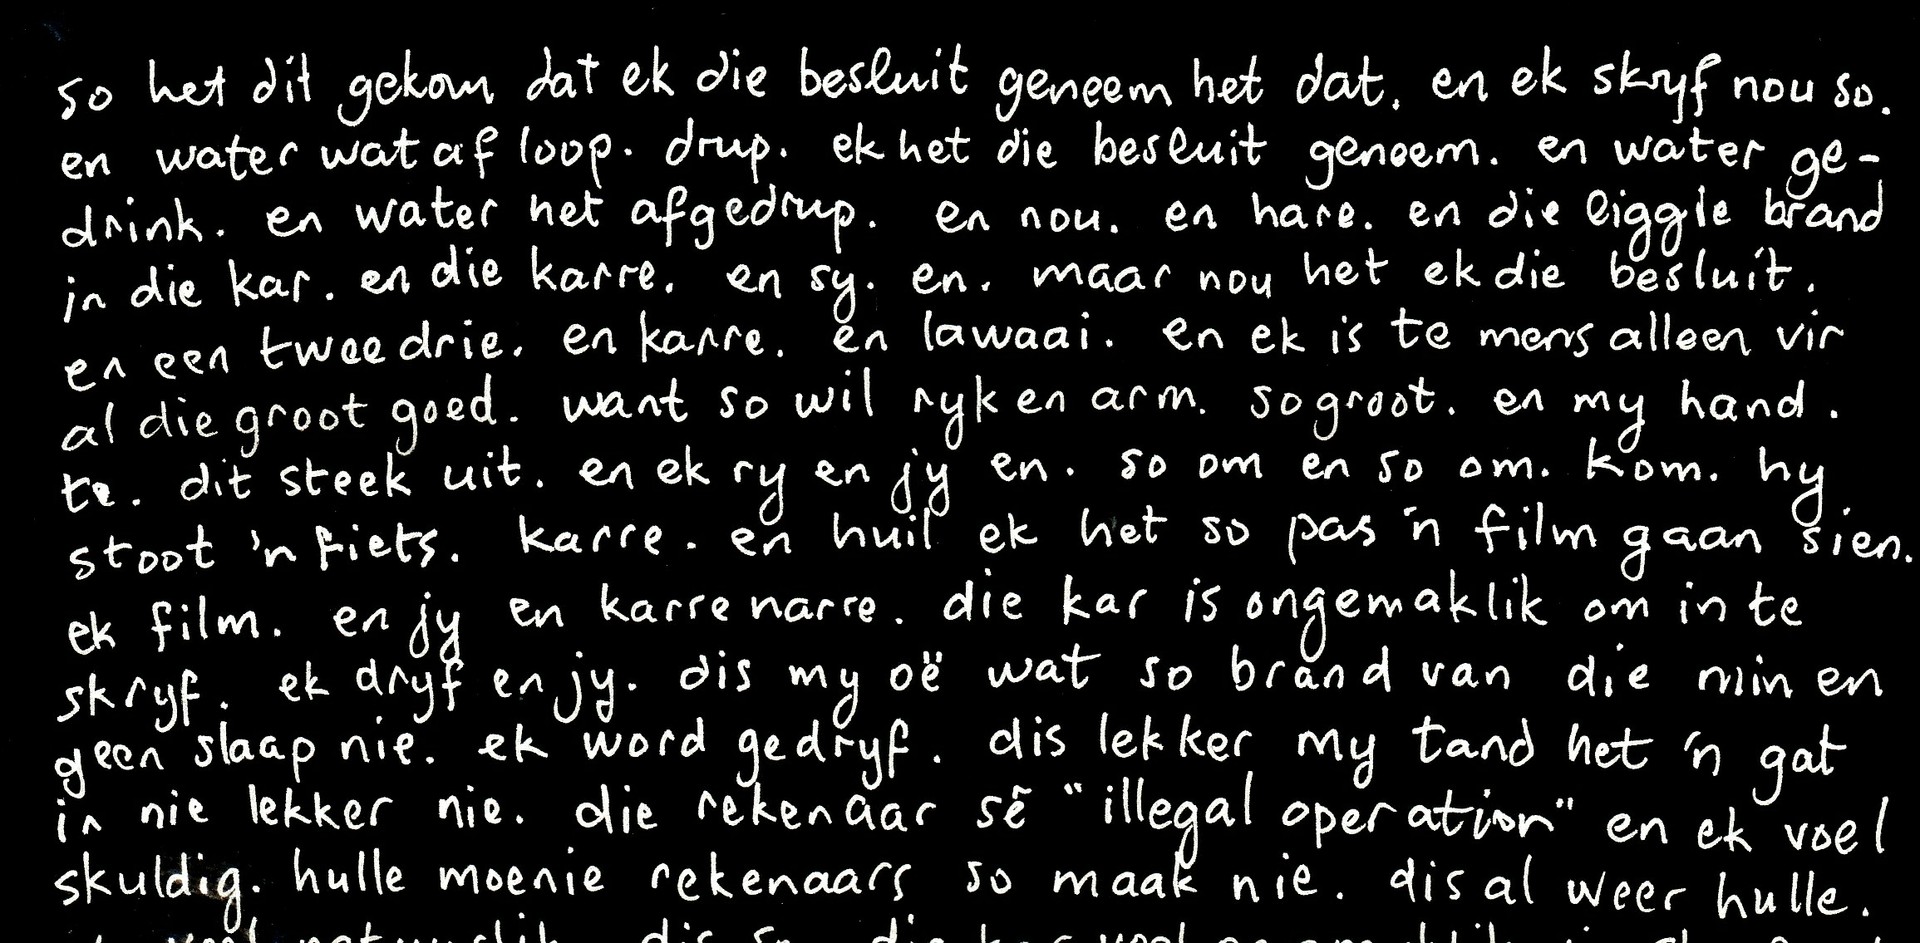 so het dit gekom dat ek die besluit geneem het dat. en ek skryf nou so.
en water wat af loop. drup. ek het die besluit geneem. en water ge-
drink. en water het afgedrup. en nou. en hare. en die liggie brand
in die kar. en die karre. en sy. en. maar nou het ek die besluit.
en een twee drie. en karre. en lawaai. en ek is te mens alleen vir
al die groot goed. want so wil ryk en arm. so groot. en my hand.
te. dit steek uit. en ek ry en jy en. so om en so om. kom. hy
stoot 'n fiets. karre. en huil ek het so pas 'n film gaan sien.
ek film. en jy en karre narre. die kar is ongemaklik om in te
skryf. ek dryf en jy. dis my oë wat so brand van die min en
geen slaap nie. ek word gedryf. dis lekker my tand het 'n gat
in nie lekker nie. die rekenaar sê "illegal operation" en ek voel
skuldig. hulle moenie rekenaars so maak nie. dis al weer hulle.